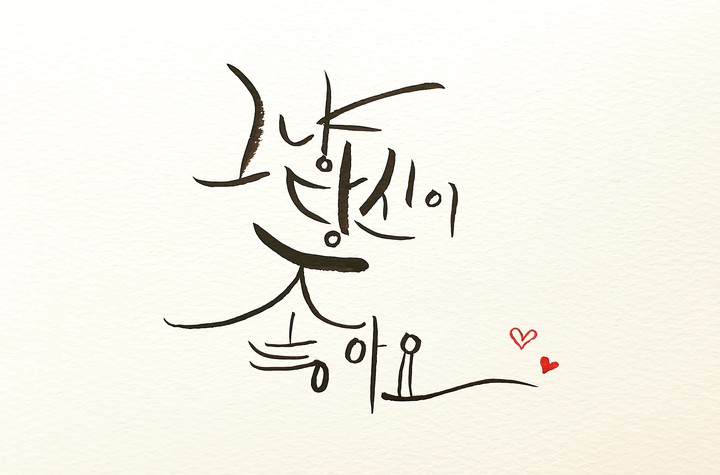 그냥
당신이
좋아요